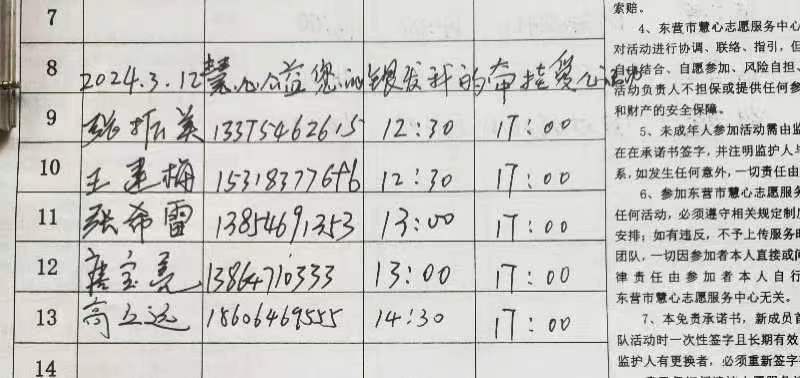 7
8 2024.3.12慧心公益您的银发我的牵挂爱心活动
9 张振英 13375462615 12:30 17:00
10 王建梅 15318377686 12:30 17:00
11 张希雷 13854691353 13:00 17:00
12 宝 13864710333 13:00 17:00
13 高立远 18606469555 14:30 17:00
14
索赔。
4、东营市慧心志愿服务中心
对活动进行协调、联络、指引,但
自由结合、自愿参加、风险自担、
活动负责人不担保或提供任何参
和财产的安全保障。
5、未成年人参加活动需由监
在在承诺书签字,并注明监护人与
系,如发生任何意外,一切责任由
6、参加东营市慧心志愿服务
任何活动,必须遵守相关规定制度
安排;如有违反,不予上传服务时
团队,一切因参加者本人直接或间
律责任由参加者本人自行
东营市慧心志愿服务中心无关。
7、本免责承诺书,新成员首
队活动时一次性签字且长期有效
监护人有更换者,必须重新签字